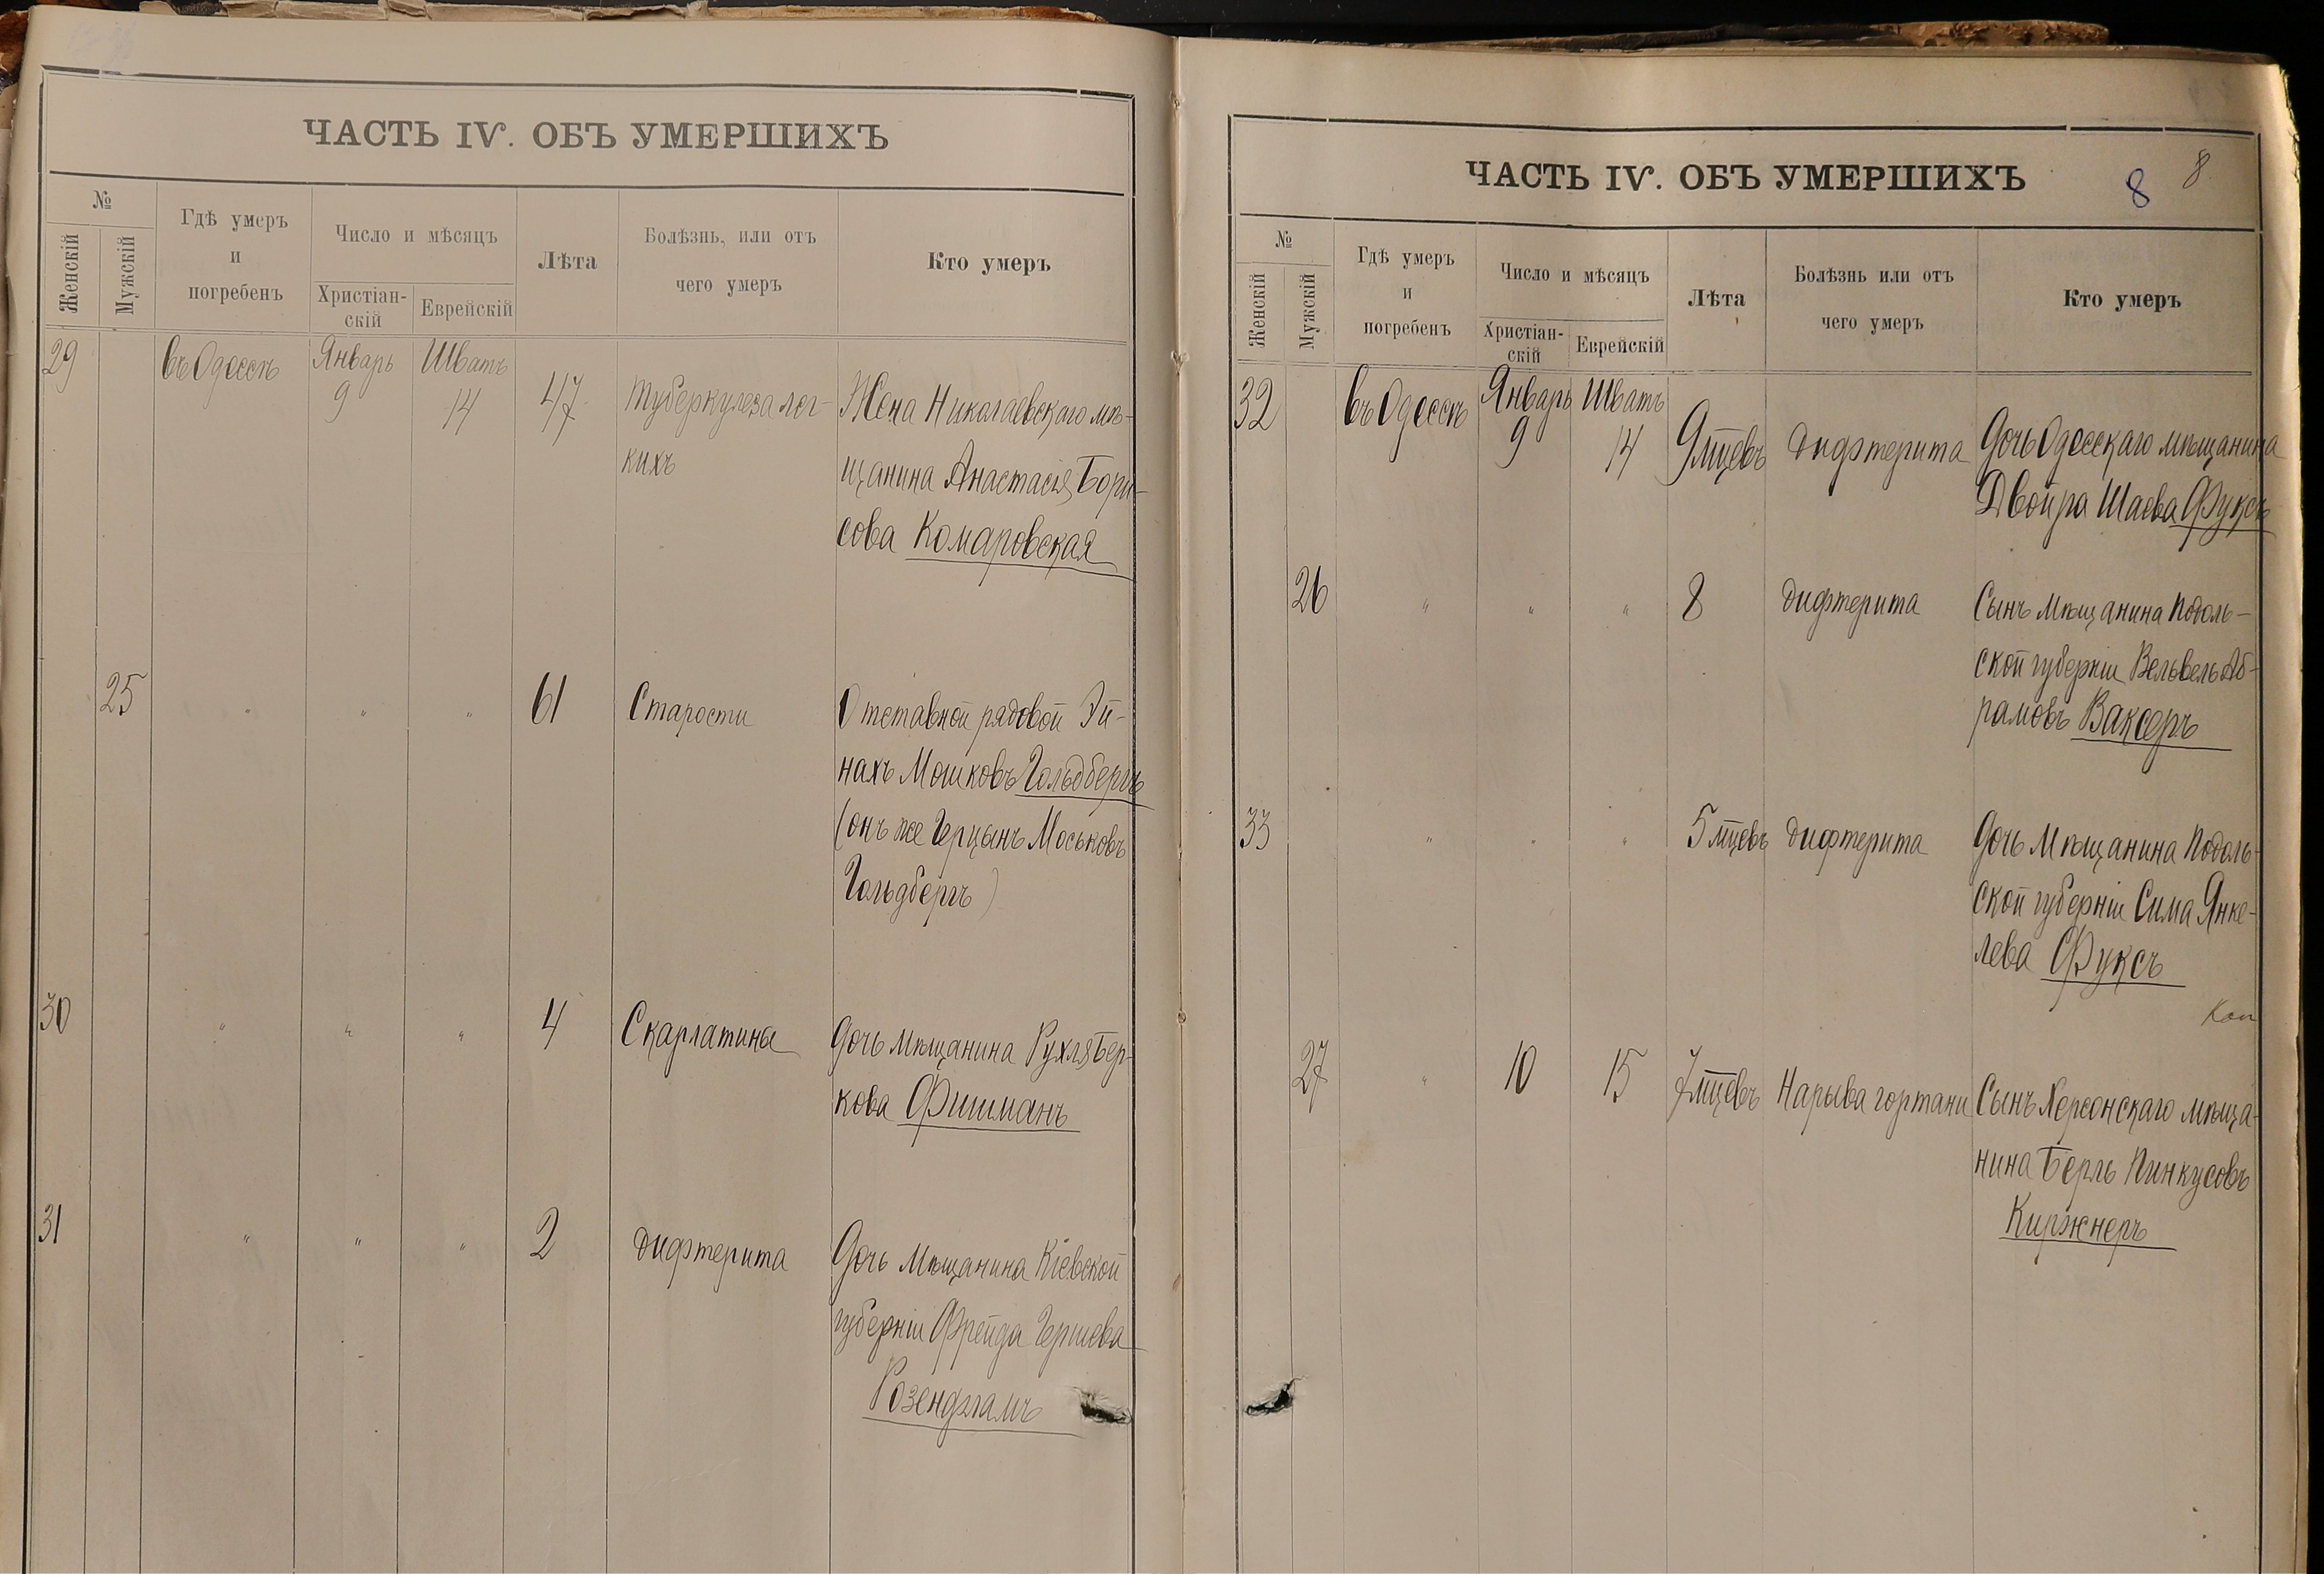 ЧАСТЬ IV. ОБЪ УМЕРШИХЪ
№
Женскій
Мужскій
Гдѣ умеръ
и
погребенъ
Число и мѣсяцъ
Христіан-
скій
Еврейскій
Лѣта
Болѣзнь, или отъ
чего умеръ
Кто умеръ
29 въ Одессѣ Январь 9 Шватъ 14 47 Туберкулеза лег- Жена Николаевскаго мѣ-
кихъ щанина Анастасія Бори-
сова Комаровская
25 " " " 61 Старости Отставной рядовой Эй-
нахъ Мошковъ Гольдбергъ
(онъ же Герцынъ Моськовъ
Гольдбергъ)
30 " " " 4 Скарлатины Дочь мѣщанина Рухля Бер-
кова Фишманъ
31 " " " 2 дифтерита Дочь мѣщанина Кіевской
губерніи Фрейда Гершева
ЧАСТЬ IV. ОБЪ УМЕРШИХЪ 8 8
№
Женскій
Мужскій
Гдѣ умеръ
и
погребенъ
Число и мѣсяцъ
Христіан-
скій
Еврейскій
Лѣта
Болѣзнь или отъ
чего умеръ
Кто умеръ
32 въ Одессѣ Январь 9 Шватъ 14 9 мцевъ Дифтерита Дочь Одесскаго мѣщанина
Двойра Шаева Фуксъ
26 " " " 8 дифтерита Сынъ мѣщанина Подоль-
ской губерніи Вельвель Аб-
рамовъ Ваксеръ
33 " " " 5 мцевъ дифтерита Дочь мѣщанина Подоль-
ской губерніи Сима Янке-
лева Фуксъ
Коп
27 " 10 15 7 мцевъ Нарыва гортани Сынъ Херсонскаго мѣща-
нина Берль Пинкусовъ
Киржнеръ